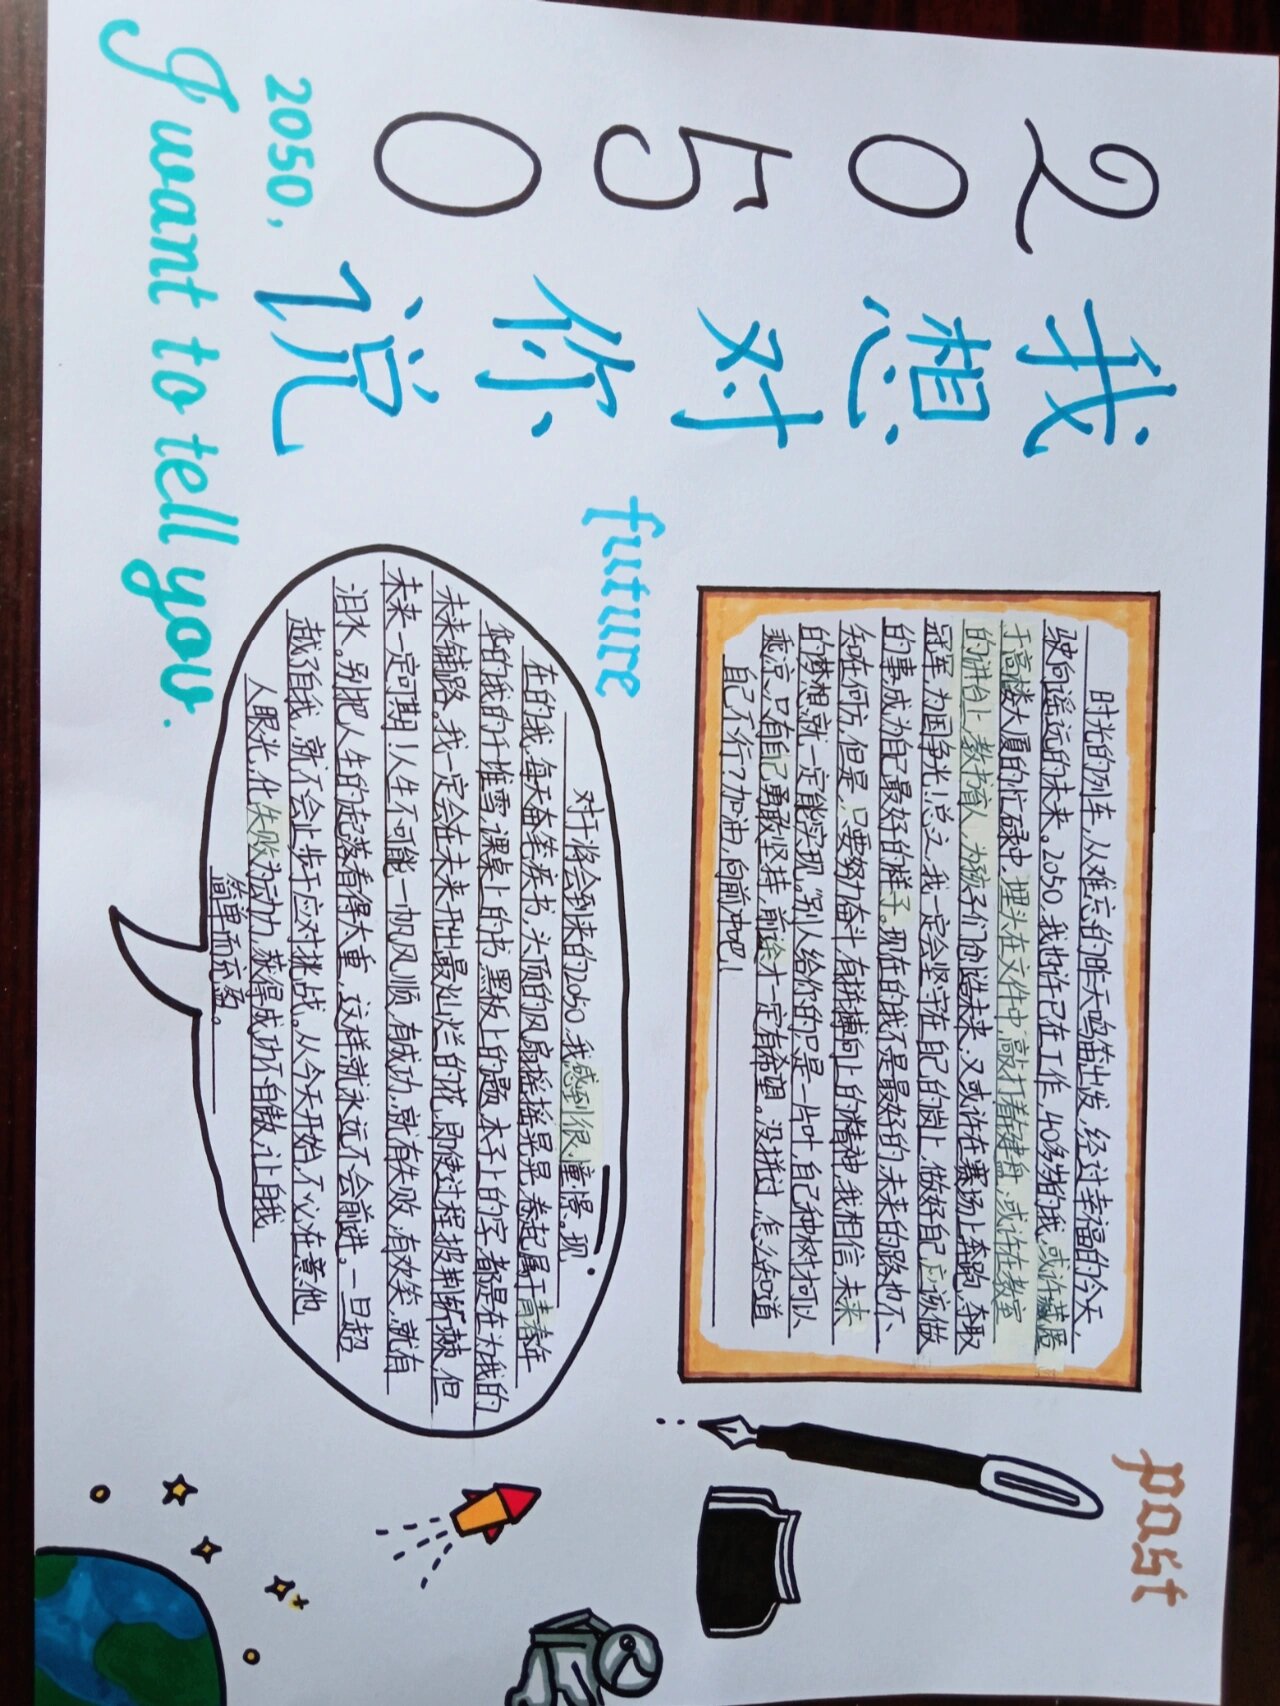 2050
我想对你说
2050,
I want to tell you.
past
时光的列车,从难忘的昨天鸣笛出发,经过幸福的今天,
驶向遥远的未来。2050,我也许已在工作,40多岁的我,或许藏匿
于高楼大厦的忙碌中,埋头在文件中,敲打着键盘,或许在教室
的讲台上,教书育人,为孩子们创造未来,又或许在赛场上奔跑,夺取
冠军,为国争光!总之,我一定会坚守在自己的岗上,做好自己应该做
的事成为自己最好的样子。现在的我不是最好的,未来的路也不
知在何方,但是,只要努力奋斗,有拼搏向上的精神,我相信,未来
的梦想就一定能实现。别人给你的只是一片叶,自己种树才可以
乘凉,只有自己勇敢坚持,前途才一定有希望。没拼过,怎么知道
自己不行?加油,向前冲吧!
future
对于将会到来的2050,我感到很憧憬。现
在的我,每天奋笔疾书,头顶的风扇摇摇晃晃,卷起属于青春年
华的我的千堆雪,课桌上的书,黑板上的题,本子上的字,都是在为我的
未来铺路。我一定会在未来开出最灿烂的花,即使过程披荆斩棘,但
未来一定可期!人生不可能一帆风顺,有成功,就有失败,有欢笑,就有
泪水。别把人生的起落看得太重,这样就永远不会前进。一旦超
越了自我,就不会止步于应对挑战。从今天开始,不必在意他
人眼光,化失败为动力,获得成功不自傲,让自我
简单而充盈。